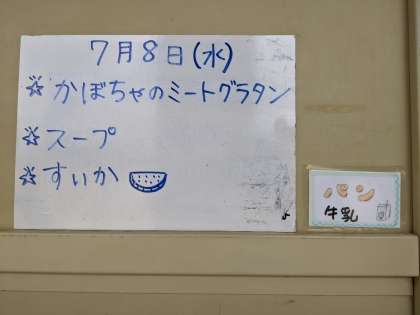 7月8日(水)
☆かぼちゃのミートグラタン
☆スープ
☆すいか
パン
牛乳